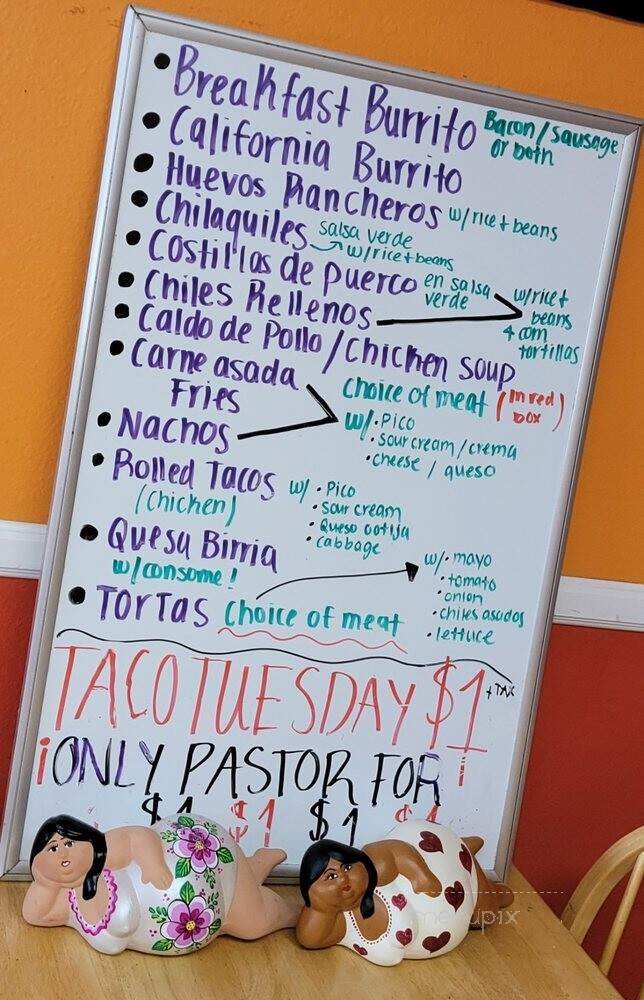 • Breakfast Burrito Bacon/sausage
or both
• California Burrito
• Huevos Rancheros w/rice + beans
• Chilaquiles salsa verde
w/rice + beans
• Costillas de puerco en salsa
verde
• Chiles Rellenos
w/rice +
beans
4 corn
tortillas
• Caldo de Pollo/Chicken soup
• Carne asada
Fries
• Nachos
Choice of meat (in red
box)
w/ • Pico
• sour cream/crema
• cheese / queso
• Rolled Tacos
(Chicken)
w/ • Pico
• sour cream
• Queso cotija
• cabbage
• Quesa Birria
w/consome!
• TORTAS Choice of meat
w/ • mayo
• tomato
• onion
• chiles asados
• lettuce
TACO TUESDAY $1 + TAX
¡ONLY PASTOR FOR!
$1 $1 $1 $1
menupix